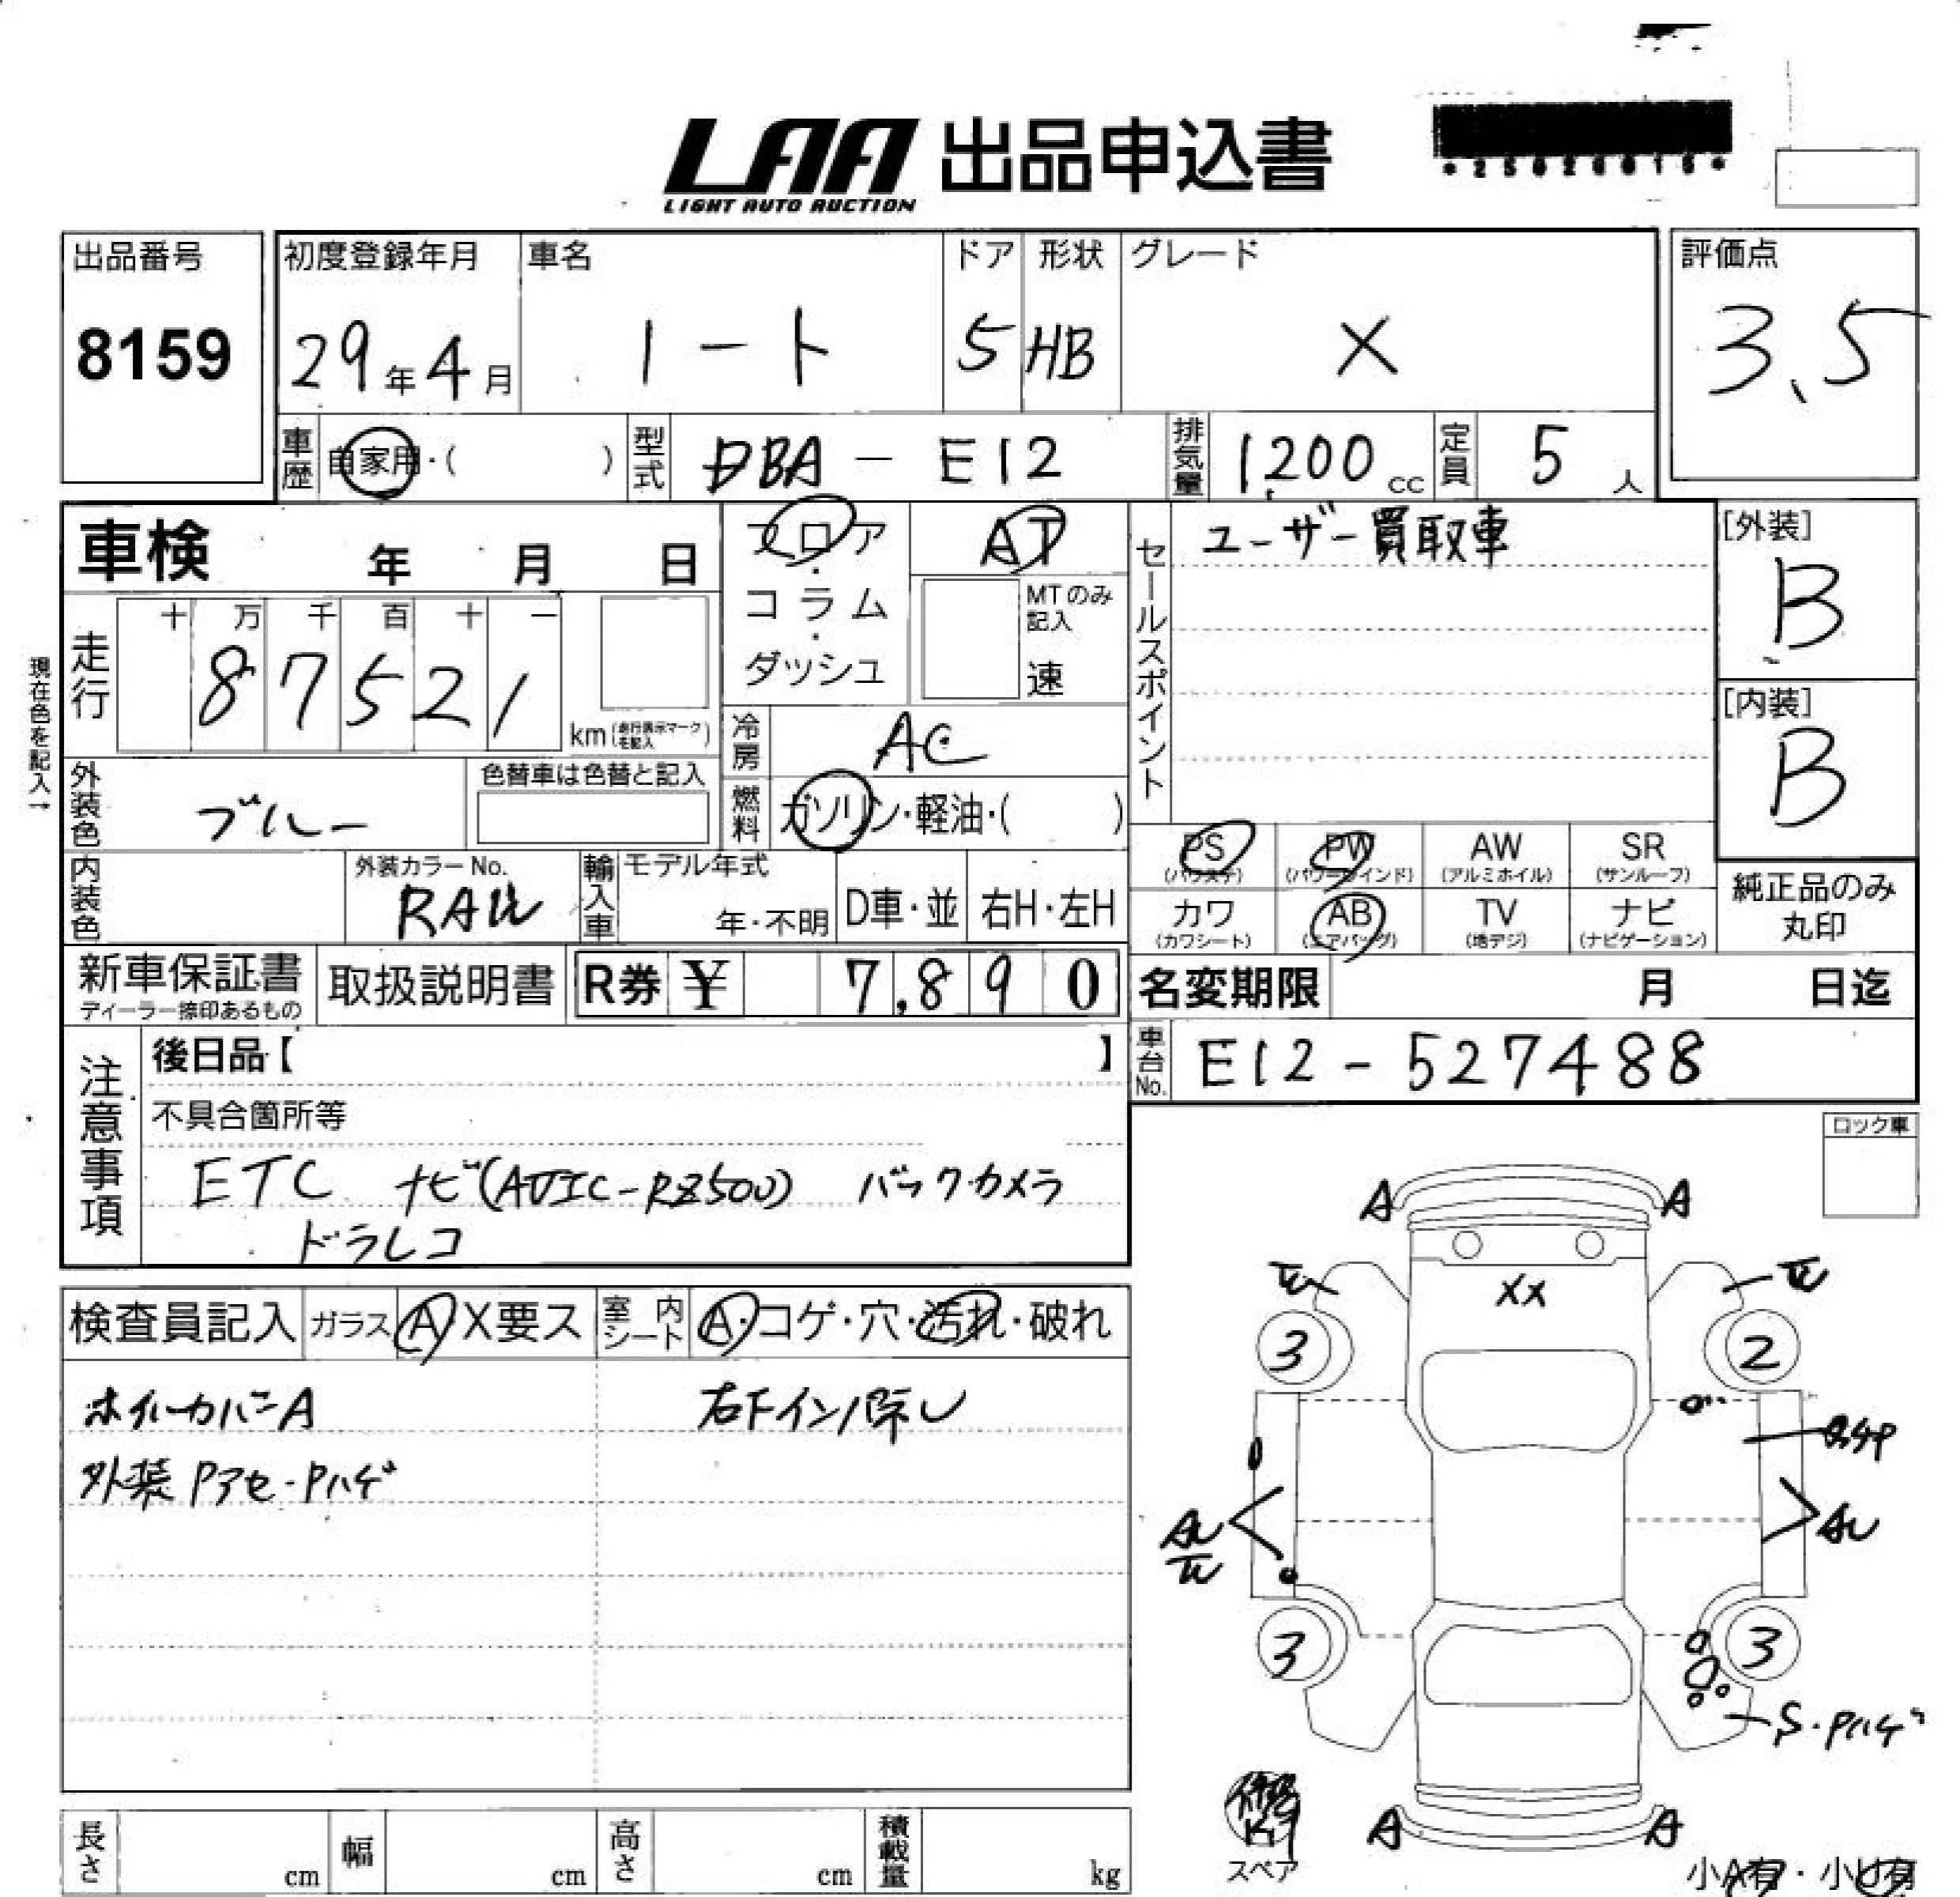 LAA 出品申込書
LIGHT AUTO AUCTION
出品番号
8159
初度登録年月
29年4月
車名
ノート
ドア
5
形状
HB
グレード
X
評価点
3.5
車歴
自家用・( )
型式
DBA - E12
排気量
1,200 cc
定員
5 人
車検 年 月 日
フロア・コラム・ダッシュ
AT
MTのみ記入
速
セールスポイント
ユーザー買取車
[外装]
B
[内装]
B
現在色を記入→
走行
十 万 千 百 十 一
8 7 5 2 1
km(走行表示マークを記入)
冷房
AC
外装色
ブルー
色替車は色替と記入
燃料
ガソリン・軽油・( )
内装色
外装カラーNo.
RAW
輸入車
モデル年式
年・不明
D車・並
右H・左H
PS (パワステ)
PW (パワーウインド)
AW (アルミホイル)
SR (サンルーフ)
カワ (カワシート)
AB (エアバッグ)
TV (地デジ)
ナビ (ナビゲーション)
純正品のみ丸印
新車保証書
ディーラー捺印あるもの
取扱説明書
R券 ¥ 7,890
名変期限 月 日迄
車台No.
E12 - 527488
注意事項
後日品【 】
不具合箇所等
ETC ナビ(AVIC-RZ500) バックカメラ
ドラレコ
ロック車
検査員記入
ガラス
A X要ス
室内シート
A・コゲ・穴・汚れ・破れ
ホイールカバーA
右Fインパ除し
外装 Pアセ・Pハゲ
A A
XX
3 2
AU
AU
3 3
S・Pハゲ
A A
スペア
小A有・小U有
長さ cm
幅 cm
高さ cm
積載量 kg